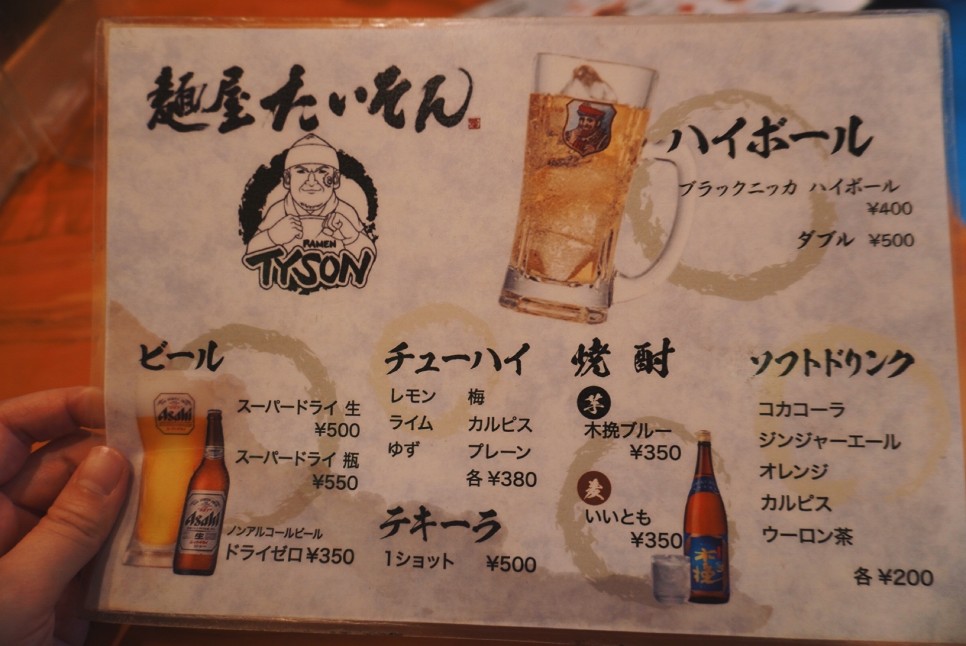 麺屋 たいそん
RAMEN
TYSON
ハイボール
ブラックニッカ ハイボール
¥400
ダブル ¥500
ビール
Asahi
スーパードライ 生
¥500
スーパードライ 瓶
¥550
Asahi
生
ノンアルコールビール
ドライゼロ ¥350
チューハイ
レモン 梅
ライム カルピス
ゆず プレーン
各 ¥380
テキーラ
1ショット ¥500
焼酎
芋
木挽ブルー
¥350
麦
いいとも
¥350
木挽
ソフトドリンク
コカコーラ
ジンジャーエール
オレンジ
カルピス
ウーロン茶
各 ¥200